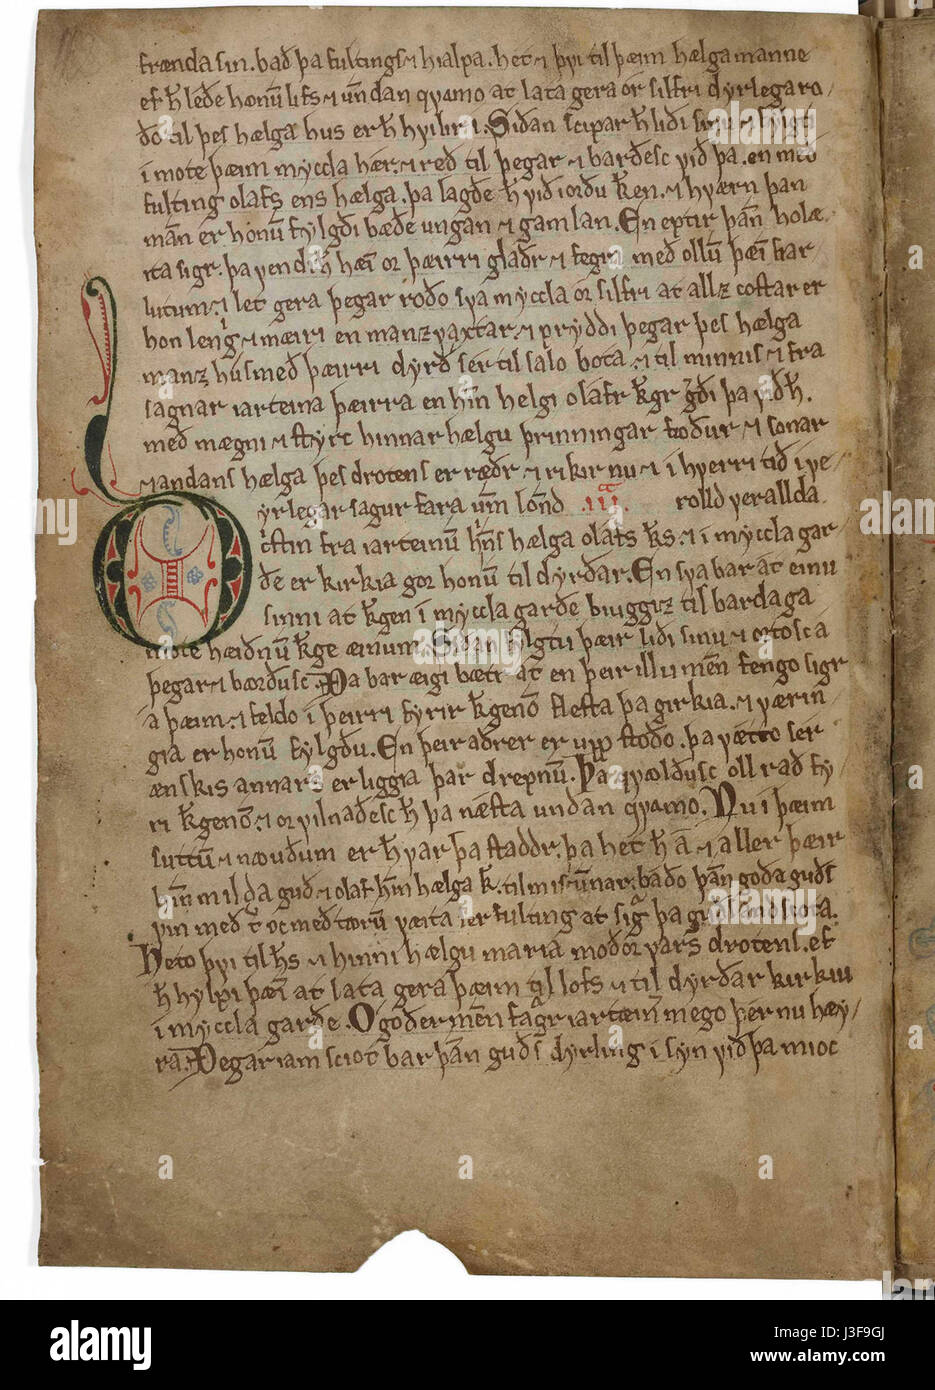 frænda sin. bað þa fultings ⁊ hialpa. het ⁊ þvi til þæim hælga manne
ef h̄ leðe honū lifs ⁊ undan qvamo at lata gera or silfri dyrlega ro-
ðo til þes hælga hus er h̄ hvilir i. Siðan scipar h̄ liði sinu ⁊ snyst
i mote þæim myccla hær. ⁊ reð til þegar ⁊ barðesc við þa. en með
fulting olafs ens hælga. þa lagðe h̄ við iorðu k̄gen. ⁊ hværn þan
man er honū fylgði bæðe ungan ⁊ gamlan. En eptir þān
sigr. þa vendi h̄ hæī or þæirri glaðr ⁊ fegin með ollū þæī
lutum. ⁊ let gera þegar roðo sva myccla or silfri at allz costar er
hon lengri ⁊ mæiri en manz vaxtar. ⁊ pryddi þegar þes hælga
manz hus með þæirri dyrð ser til salo bota. ⁊ til minnis ⁊ fra
sagnar iarteina þæirra en hin helgi olafr k̄gr gerði þa við h̄.
með mægni ⁊ styrc hinnar hælgu þrinningar foður ⁊ sonar
⁊ andans hælga þes drotens er ræðr ⁊ rikir nu ⁊ i hverri tið i ve-
yrlegar sagur fara um lond .iii. rolld verallda.
cristin fra iarteinū hīns hælga olafs k̄s. ⁊ i myccla gar
ðe er kirkia gor honū til dyrðar. En sva bar at einu
sinni at k̄gen i myccla garðe biuggiz til bardaga
mote hæiðnū k̄ge æinum. Siðan fylgtu þæir liði sinu ⁊ ortosc a
þegar ⁊ bærðusc. Þa bar æigi bætr at en þeir illu mēn fengo sigr
a þæim. ⁊ feldo i þeirri fyrir k̄genō flesta þa girkia. ⁊ værin
gia er honū fylgðu. En þeir aðrer er upp stoðo. þa vætto ser
ænskis annars er liggia þar drepnū. Þa qvolðusc oll rað fy-
ri k̄genō. ⁊ orvilnaðesc h̄ þa næsta undan qvamo. Nu i þæim
suttū ⁊ nouðum er h̄ var þa staddr. þa het h̄ a ⁊ aller þæir
hīn milda guð ⁊ olaf hīn hælga k̄. til miscunnar. baðo þān goða guðs
vin með tarū væita ser fulting at sigra þa guðs andscota.
Heto þvi til h̄s ⁊ hinni hælgu maria moðor vars drotens. ef
h̄ hylpi þæī at lata gera þæim til lofs ⁊ til dyrðar kirkiu
i myccla garðe. O goðer mēn fagr iartæin mego þer nu hæy-
ra. Þegar iam sciot bar þān guðs dyrling i syn við þa mioc